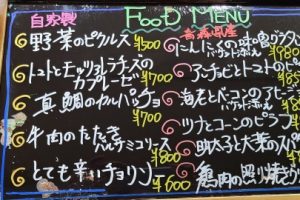 自家製 FOOD MENU
野菜のピクルス ¥500
トマトとモッツァレラチーズの
カプレーゼ ¥700
真鯛のカルパッチョ
¥700
牛肉のたたき
バルサミコソース ¥800
とても辛いチョリソー ¥600
青森県産
にんにくの味噌グラタン
バゲット
¥980
アンチョビとトマトのピ
海老とベーコンのアヒージョ
バゲット
ツナとコーンのピラフ
¥800
明太子と大葉のスパ
¥850
鶏肉の照り焼き